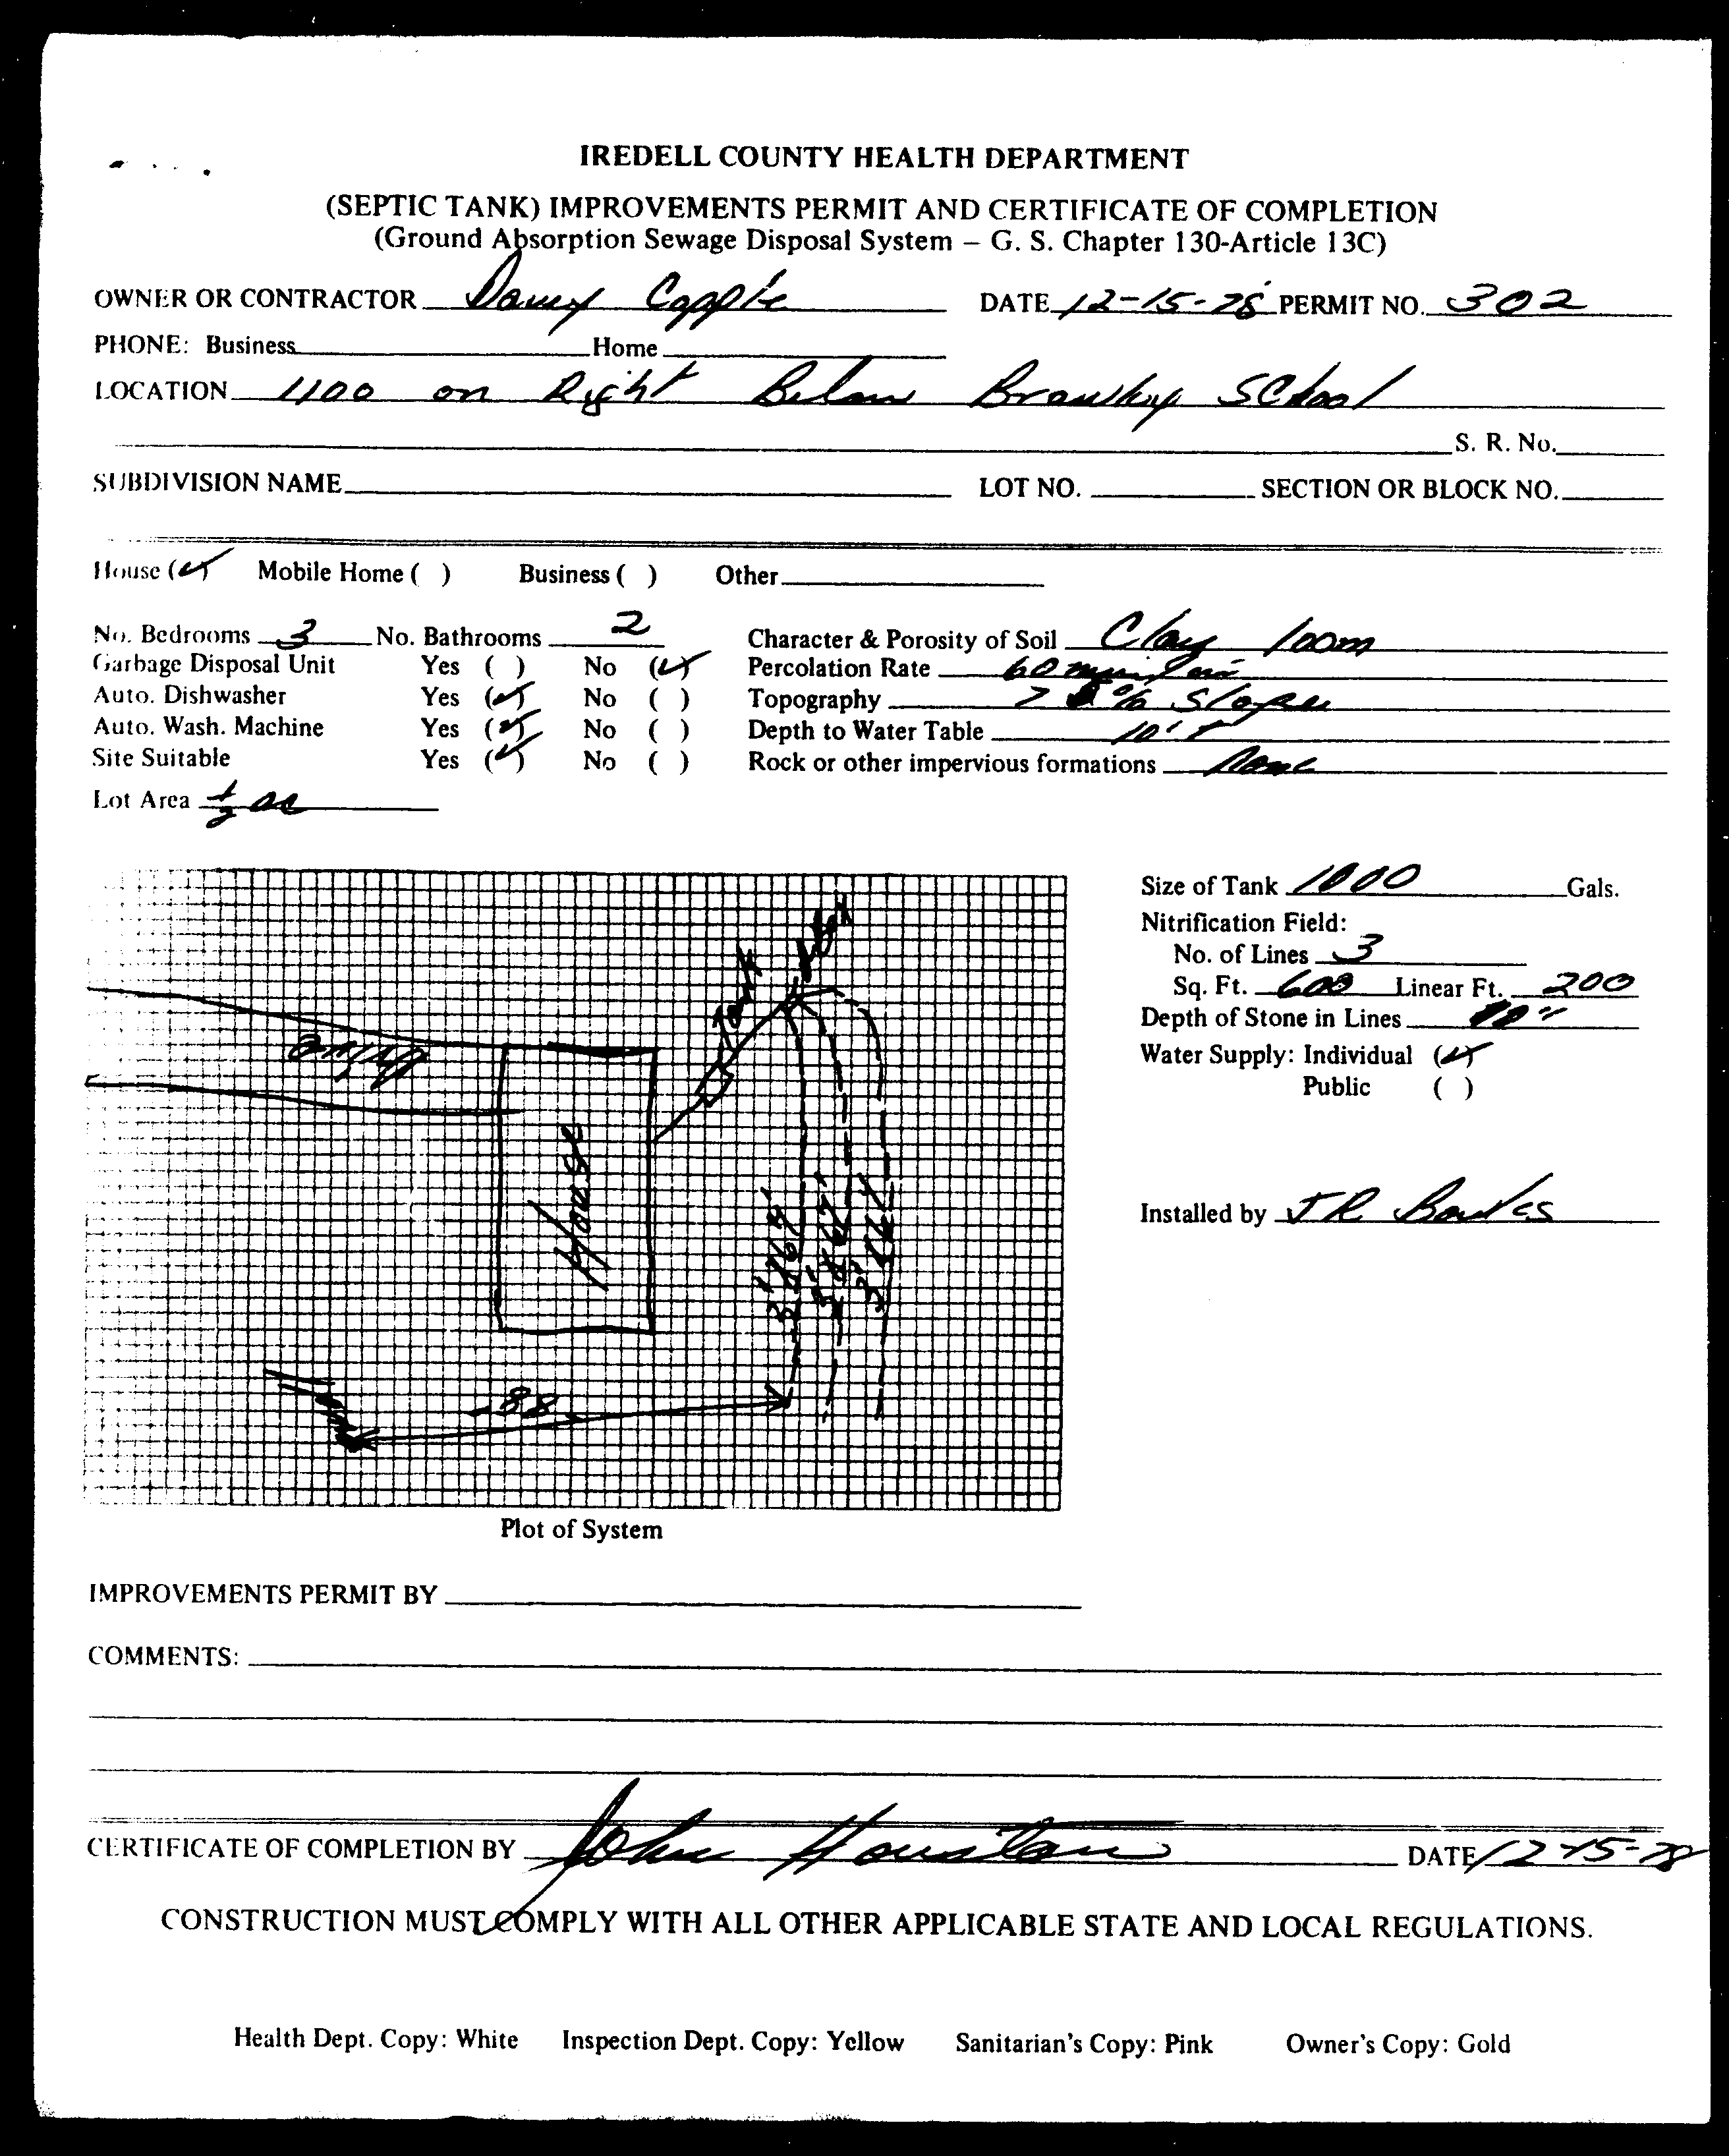 IREDELL COUNTY HEALTH DEPARTMENT
(SEPTIC TANK) IMPROVEMENTS PERMIT AND CERTIFICATE OF COMPLETION
(Ground Absorption Sewage Disposal System – G. S. Chapter 130-Article 13C)
OWNER OR CONTRACTOR DATE 12-15-78 PERMIT NO. 302
PHONE: Business Home
LOCATION 1100 on Right Below Brawley SChool
S. R. No.
SUBDIVISION NAME LOT NO. SECTION OR BLOCK NO.
House (✓) Mobile Home ( ) Business ( ) Other
No. Bedrooms 3 No. Bathrooms 2 Character & Porosity of Soil Clay loom
Garbage Disposal Unit Yes ( ) No (✓) Percolation Rate 60 min/in
Auto. Dishwasher Yes (✓) No ( ) Topography % Slope
Auto. Wash. Machine Yes (✓) No ( ) Depth to Water Table 10'
Site Suitable Yes (✓) No ( ) Rock or other impervious formations None
Lot Area 1/2 ac
Size of Tank 1000 Gals.
Nitrification Field:
No. of Lines 3
Sq. Ft. 600 Linear Ft. 200
Depth of Stone in Lines
Water Supply: Individual (✓)
Public ( )
Installed by JR Banks
Tank
Drive
House
3'x67'
3'x67'
3'x67'
88
Well
Plot of System
IMPROVEMENTS PERMIT BY
COMMENTS:
CERTIFICATE OF COMPLETION BY John Houston DATE 12-15-78
CONSTRUCTION MUST COMPLY WITH ALL OTHER APPLICABLE STATE AND LOCAL REGULATIONS.
Health Dept. Copy: White Inspection Dept. Copy: Yellow Sanitarian's Copy: Pink Owner's Copy: Gold